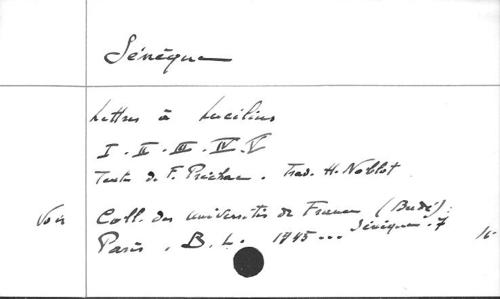 Sénèque
Lettres à Lucilius
I. II. III. IV. V
Texte de F. Préchac. Trad. H. Noblot
Voir Coll. des Universités de France (Budé):
Paris, B. L. 1945... Sénèque. 7
16